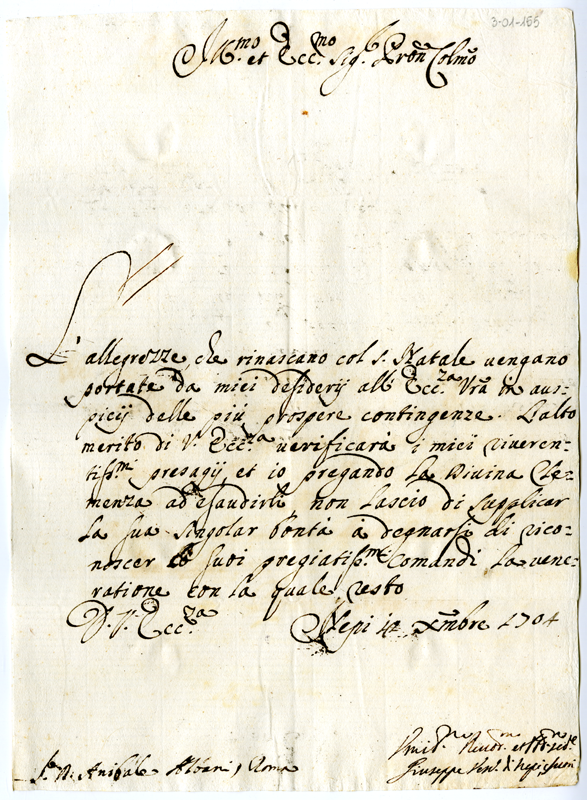 3-01-165
Ill.mo et Ecc.mo Sig.r Pron Colmo
L' allegrezze, che rinascano col S. Natale vengano
portate da miei desiderij all' Ecc.za Vra in aus-
picij delle più prospere contingenze. L'alto
merito di V. Ecc.za verificarà i miei riveren-
tiss.mi presagij et io pregando la Divina Cle-
menza ad' esaudirli, non lascio di supplicar
la sua singolar bontà à degnarsi di rico-
noscer le suoi pregiatiss.mi Comandi la vene-
ratione con la quale resto
D. V. Ecc.za
Nepi 14 Xmbre 1704
S.r D. Anibale Albani, Roma
Giuseppe Vesc. di Nepi, e Sutri